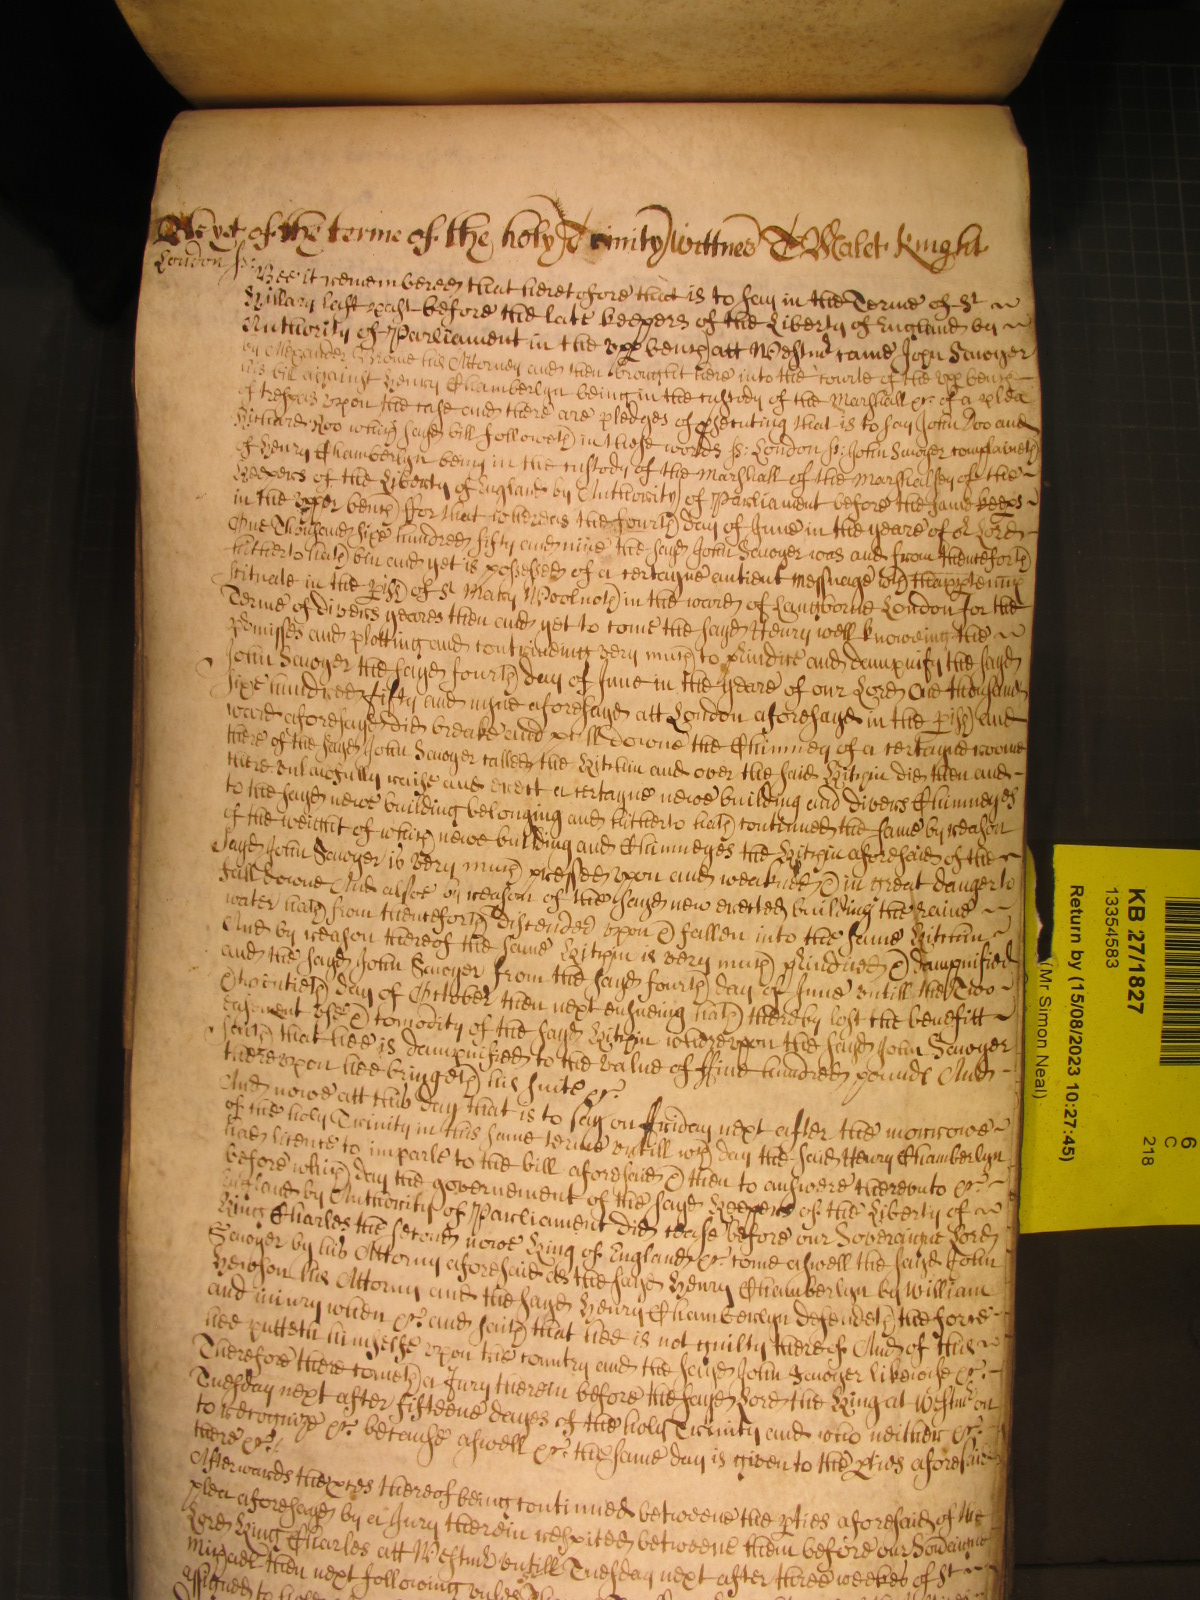 As yet of the terme of the holy Trinity wittnes T Malet Knight
London ss: Bee it remembered that heretofore that is to say in the Terme of St
Hillary last past before the late keepers of the Liberty of England by
Authority of Parliament in the upp bench att Westmr came John Sawyer
by Alexander Brome his Attorney and then brought here into the courte of the upp bench
his bill against Henry Chamberlyn being in the custody of the Marshall &c of a plea
of trespas upon the case and there are pledges of psecuting that is to say John Doo and
Richard Roo which sayd bill followeth in these words ss: London ss: John Sawyer complaineth
of Henry Chamberlyn being in the custody of the Marshall of the Marshallsey of the
Keepers of the Liberty of England by Authority of Parliament before the same keeps
in the upper bench ffor that whereas the fourth day of June in the yeare of or Lord
One Thousand sixe hundred fifty and nine the sayd John Sawyer was and from thenceforth
hitherto hath bin and yet is possessed of a certayne antient messuage wth thapptenncs
scituate in the pish of St Mary Woolnoth in the ward of Langborne London for the
Terme of divers yeares then and yet to come the sayd Henry well knoweing the
pmisses and plotting and contriveing very much to pjudice and dampnify the sayd
John Sawyer the sayd fourth day of June in the yeare of our Lord One thousand
sixe hundred fifty and nyne aforesayd att London aforesayd in the pish and
ward aforesayd did breake and pull downe the Chimney of a certayne roome
there of the sayd John Sawyer called the Kitchin and over the said Kitchin did then and
there unlawfully raise and erect a certayne newe building and divers Chimneyes
to the sayd newe building belonging and hitherto hath continued the same by reason
of the weight of which newe building and Chimneyes the Kitchin aforesaid of the
sayd John Sawyer is very much pressed upon and weakned & in great danger to
fall downe And alsoe by reason of the sayd new erected building the raine
water hath from thenceforth discended upon & fallen into the same Kitchin
And by reason thereof the same Kitchin is very much pjudiced & dampnified
and the sayd John Sawyer from the sayd fourth day of June untill the Two
& twentieth day of October then next ensueing hath thereby lost the benefitt
easement use & comodity of the sayd Kitchin whereupon the sayd John Sawyer
saith that hee is dampnified to the value of ffive hundred pounds And
thereupon hee bringeth his suite &c.
And nowe att this day that is to say on Friday next after the morrowe
of the holy Trinity in this same terme untill wch day the said Henry Chamberlyn
had licence to imparle to the bill aforesaid & then to answere thereunto &c
before which day the governement of the sayd Keepers of the Liberty of
England by Authority of Parliament did cease before our Soveraigne Lord
King Charles the second nowe King of England &c. come aswell the sayd John
Sawyer by his Attorny aforesaid as the sayd Henry Chamberlyn by William
Hewson his Attorny and the sayd Henry Chamberlyn defendeth the force
and iniury when &c. and saith that hee is not guilty thereof And of this
hee putteth himselfe upon the country and the sayd John Sawyer likewise &c.
Therefore there cometh a Jury therein before the sayd Lord the King at Westmr on
Tuesday next after fifteene dayes of the holy Trinity and who neither &c.
to recognize &c. because aswell &c. the same day is given to the pties aforesaid
there &c.
Afterwards the pces thereof being continued betweene the pties aforesaid of the
plea aforesayd by a Jury therein respited betweene them before our Soveraigne
Lord King Charles att Westmr untill Tuesday next after three weekes of St
Michael then next following unles
assigned to
KB 27/1827
13354583
Return by (15/08/2023 10:27:45)
(Mr Simon Neal)
6
C
218